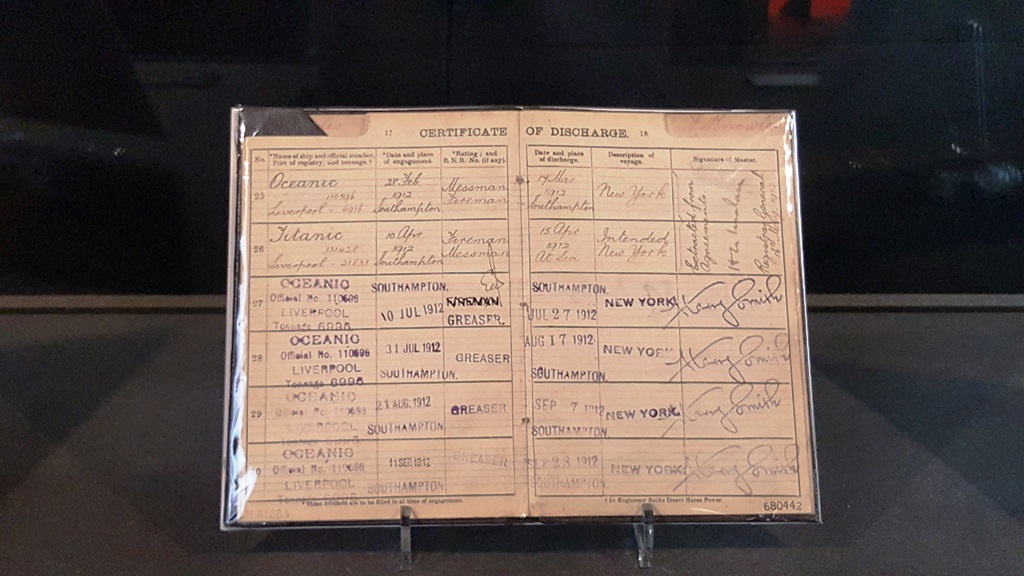 17 CERTIFICATE OF DISCHARGE. 18
No. *Name of ship and official number, Port of registry, and tonnage.† *Date and place of engagement. *Rating; and R.N.R. No. (if any). Date and place of discharge. Description of voyage. Signature of Master.
25 Oceanic 28 Feb Messman 17 Mar New York Extracted from
110596 1912 Fireman 1912 Agreements
Liverpool - Southampton Southampton
26 Titanic 10 Apr Fireman 15 Apr Intended Registrar General
131428 1912 Messman 1912 New York
Liverpool - 21831 Southampton At Sea
27 OCEANIC SOUTHAMPTON. SOUTHAMPTON. NEW YORK Smith
Official No. 110596 10 JUL 1912 FIREMAN. JUL 27 1912
LIVERPOOL GREASER.
Tonnage 6996
28 OCEANIC 31 JUL 1912 GREASER AUG 17 1912 NEW YORK Smith
Official No. 110596
LIVERPOOL SOUTHAMPTON. SOUTHAMPTON.
Tonnage 6996
29 OCEANIC 21 AUG. 1912 GREASER SEP 7 1912 NEW YORK. Smith
Official No. 110596
LIVERPOOL SOUTHAMPTON. SOUTHAMPTON.
Tonnage 6996
OCEANIC 11 SEP 1912 GREASER SEP 28 1912 NEW YORK Smith
Official No. 110596
LIVERPOOL SOUTHAMPTON. SOUTHAMPTON.
Tonnage 6996
* These columns are to be filled in at time of engagement. † In Engineers' Books Insert Horse Power.
680442